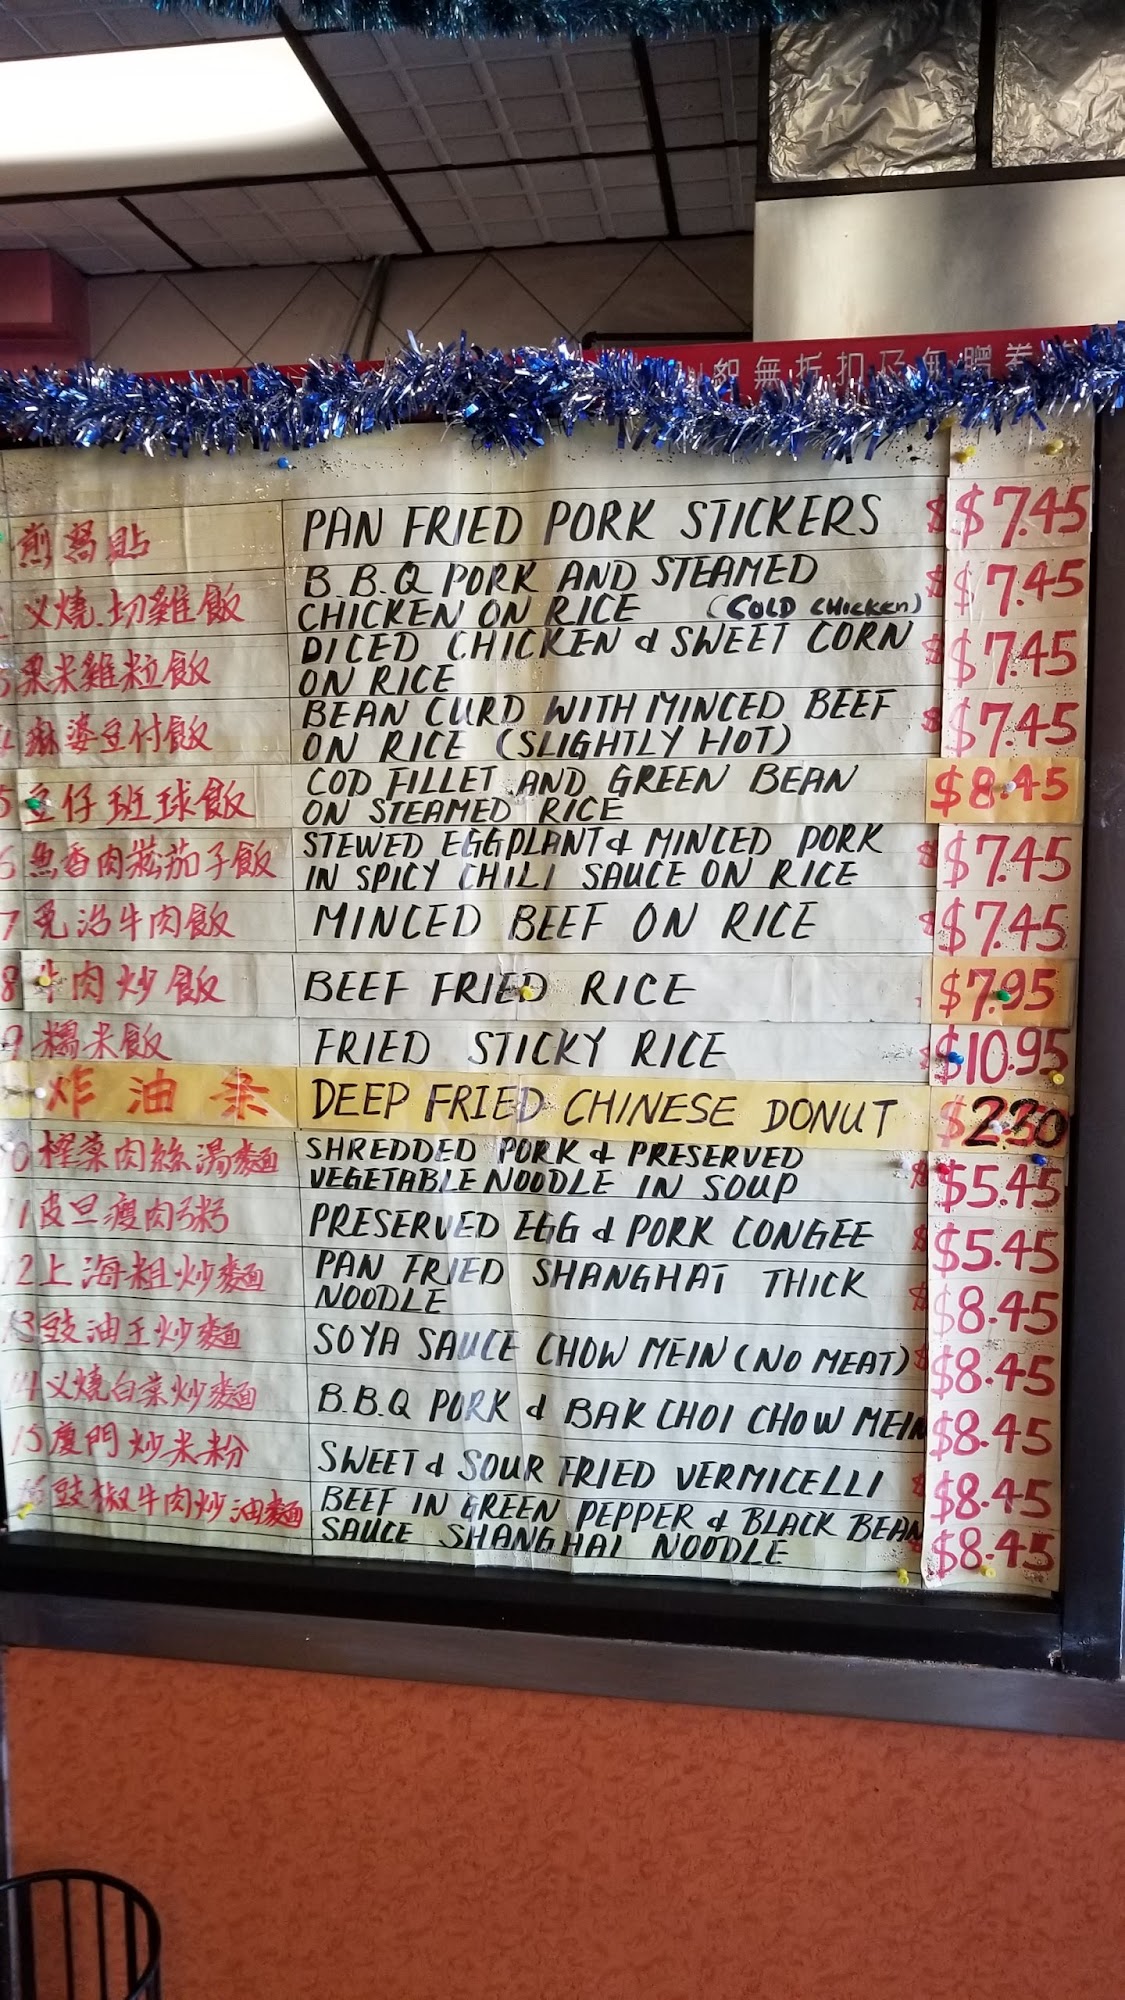 恕無折扣及無贈券
煎窩貼 PAN FRIED PORK STICKERS $7.45
叉燒.切雞飯 B.B.Q PORK AND STEAMED $7.45
CHICKEN ON RICE (COLD CHICKEN)
粟米雞粒飯 DICED CHICKEN & SWEET CORN $7.45
ON RICE
麻婆豆付飯 BEAN CURD WITH MINCED BEEF $7.45
ON RICE (SLIGHTLY HOT)
5 豆仔班球飯 COD FILLET AND GREEN BEAN $8.45
ON STEAMED RICE
6 魚香肉崧茄子飯 STEWED EGGPLANT & MINCED PORK $7.45
IN SPICY CHILI SAUCE ON RICE
7 免治牛肉飯 MINCED BEEF ON RICE $7.45
8 牛肉炒飯 BEEF FRIED RICE $7.95
9 糯米飯 FRIED STICKY RICE $10.95
炸油条 DEEP FRIED CHINESE DONUT $2.30
0 榨菜肉絲湯麵 SHREDDED PORK & PRESERVED $5.45
VEGETABLE NOODLE IN SOUP
11 皮旦瘦肉粥 PRESERVED EGG & PORK CONGEE $5.45
12 上海粗炒麵 PAN FRIED SHANGHAI THICK $8.45
NOODLE
13 豉油王炒麵 SOYA SAUCE CHOW MEIN (NO MEAT) $8.45
14 叉燒白菜炒麵 B.B.Q PORK & BAK CHOI CHOW MEIN $8.45
15 廈門炒米粉 SWEET & SOUR FRIED VERMICELLI $8.45
16 豉椒牛肉炒油麵 BEEF IN GREEN PEPPER & BLACK BEAN $8.45
SAUCE SHANGHAI NOODLE